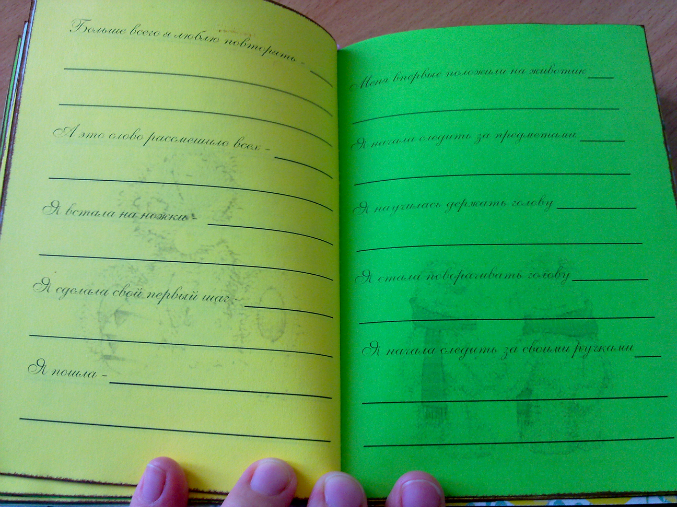 Больше всего я люблю повторять -
А это слово рассмешило всех -
Я встала на ножки -
Я сделала свой первый шаг -
Я пошла -
Меня впервые положили на животик
Я начала следить за предметами
Я научилась держать голову
Я стала поворачивать голову
Я начала следить за своими ручками